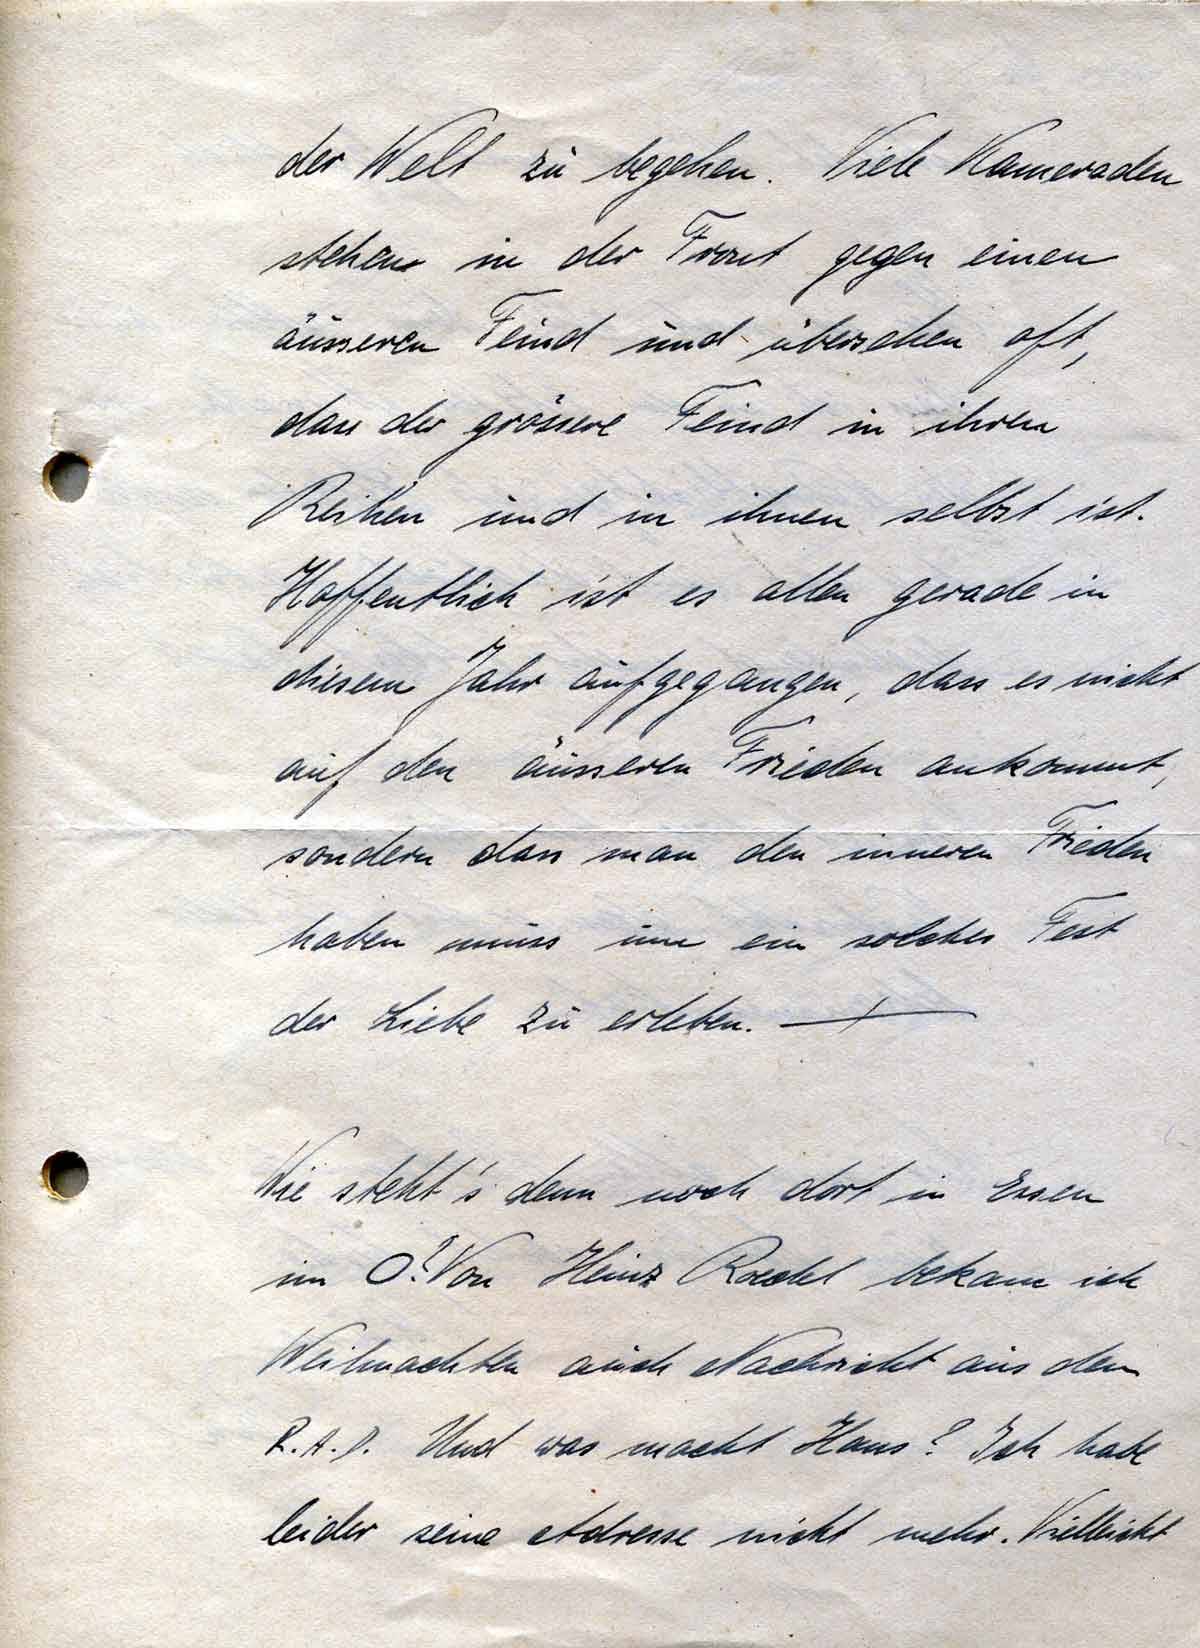 der Welt zu begehen. Viele Kameraden
stehen in der Front gegen einen
äusseren Feind und übersehen oft,
dass der grössere Feind in ihren
Reihen und in ihnen selbst ist.
Hoffentlich ist es allen gerade in
diesem Jahr aufgegangen, dass es nicht
auf den äusseren Frieden ankommt,
sondern dass man den inneren Frieden
haben muss um ein solches Fest
der Liebe zu erleben.
Wie steht's denn noch dort in Essen
im O? Von Heinz Roedel bekam ich
Weihnachten auch Nachricht aus dem
R.A.D. Und was macht Hans? Ich habe
leider seine Adresse nicht mehr. Vielleicht